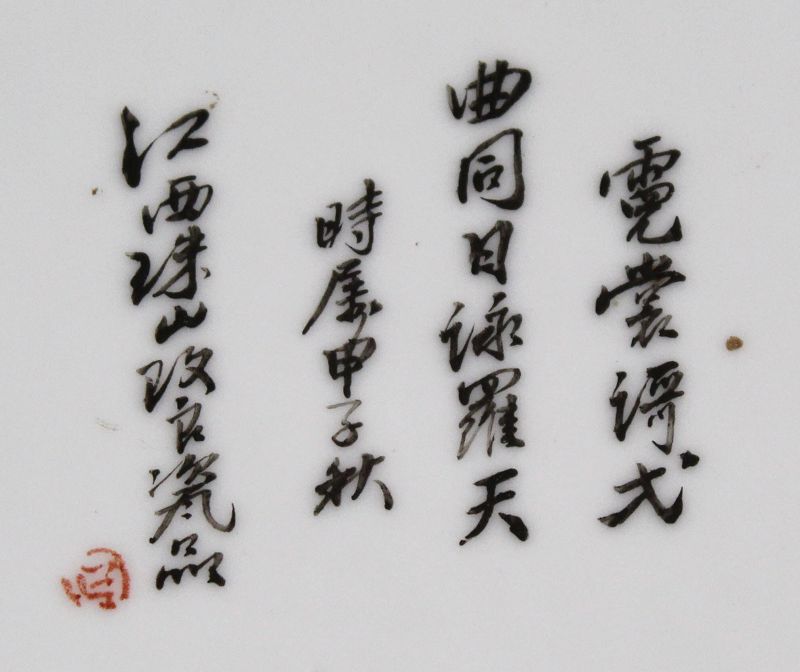 霓裳謌弌
曲同日詠羅天
時屬甲子秋
江西珠山改良瓷品